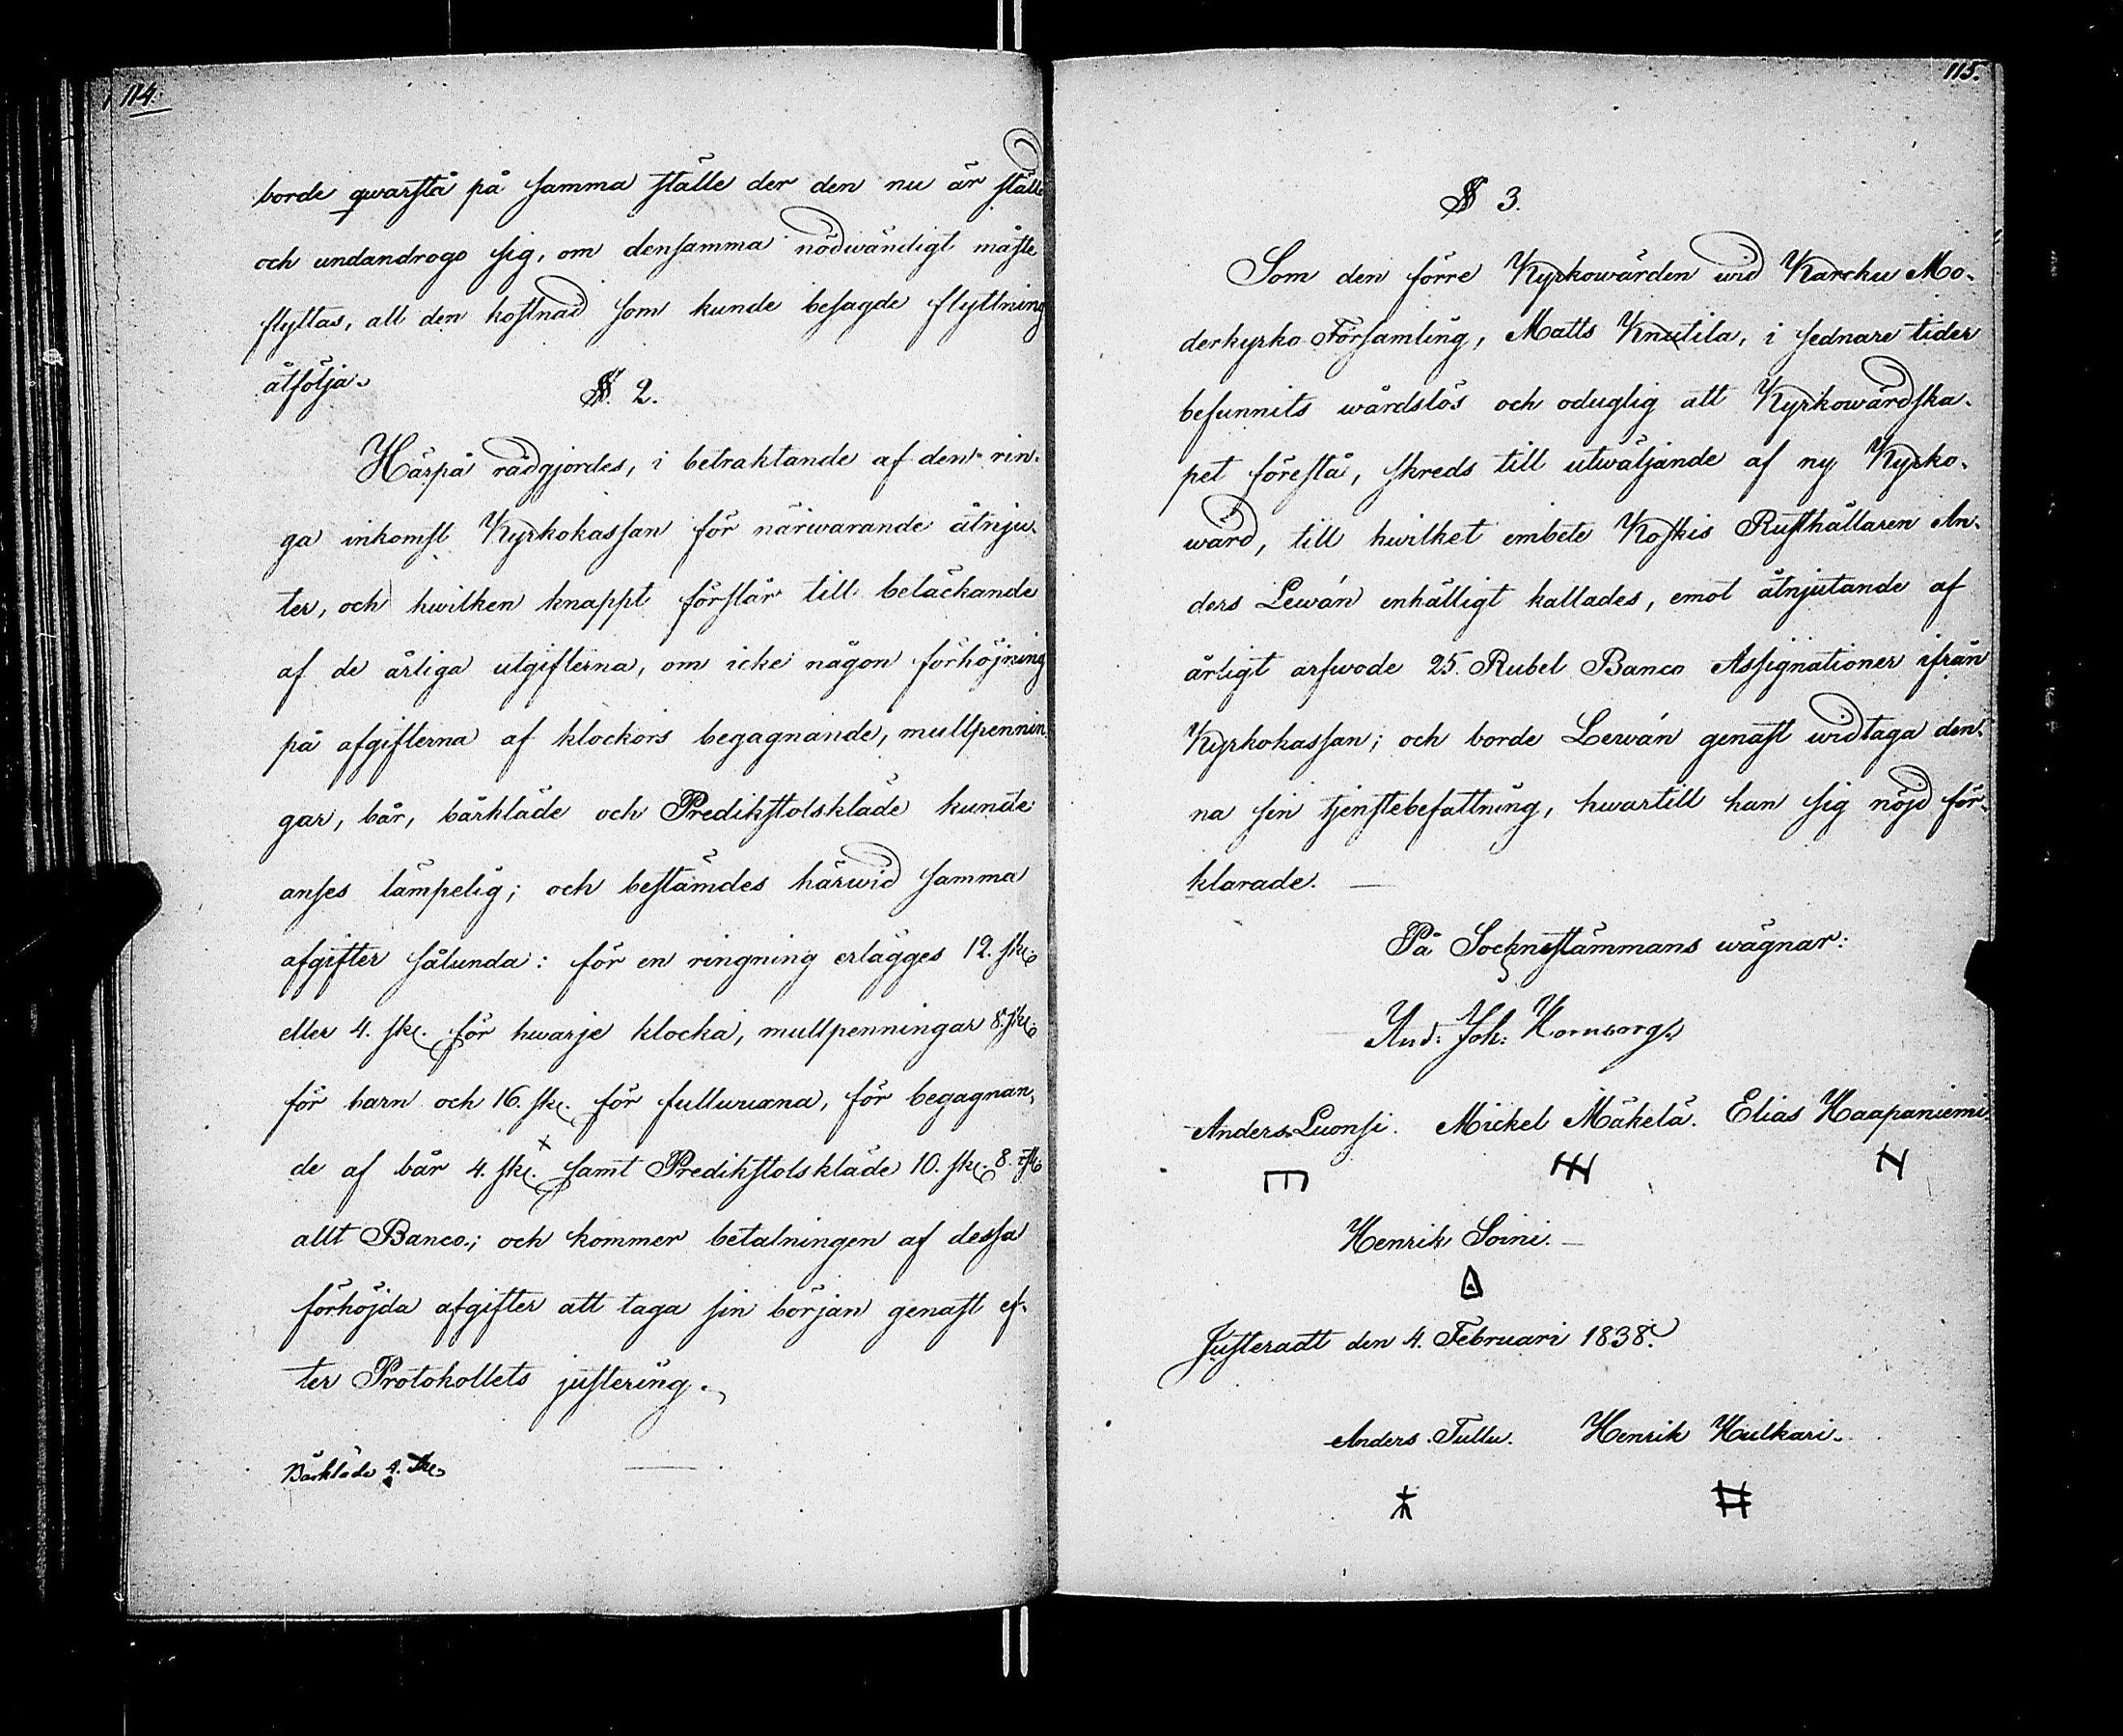 114.
borde qwarstå på samma ställe der den nu är ställd
och undandrogo sig, om densamma nödwändigt måste
flyttas, all den kostnad som kunde besagde flyttning
åtfölja.
§. 2.
Härpå rådgjordes, i betraktande af den rin-
ga inkomst Kyrkokassan för närwarande åtnju-
ter, och hwilken knappt förslår till betäckande
af de årliga utgifterna, om icke någon förhöjning
på afgifterna af klockors begagnande, mullpennin-
gar, bår, bårkläde och Predikstolskläde kunde
anses lämpelig; och bestämdes härwid samma
afgifter sålunda: för en ringning erlägges 12. sk.
eller 4. sk. för hwarje klocka, mullpenningar 8. sk.
för barn och 16. sk. för fullwuxna, för begagnan-
de af bår 4. sk. x samt Predikstolskläde 10. sk. 8. rst.
allt Banco.; och kommer betalningen af dessa
förhöjda afgifter att taga sin början genast ef-
ter Protokollets justering.
Bårkläde 4. sk.
115.
§ 3.
Som den förre Kyrkowärden wid Karcku Mo-
derkyrko Församling, Matts Knutila, i sednare tider
befunnits wårdslös och oduglig att Kyrkowärdska-
pet förestå, skreds till utwäljande af ny Kyrko-
wärd, till hwilket embete Koskis Rusthållaren An-
ders Lewán enhälligt kallades, emot åtnjutande af
årligt arfwode 25. Rubel Banco Assignationer ifrån
Kyrkokassan; och borde Lewán genast widtaga den-
na sin tjenstebefattning, hwartill han sig nöjd för-
klarade.
På Sockenstämmans wägnar:
And: Joh: Hornborg
Anders Luonsi. Mickel Mäkelä. Elias Haapaniemi
Henrik Soini.
Justeradt den 4. Februari 1838.
Anders Tullu. Henrik Hulkari.